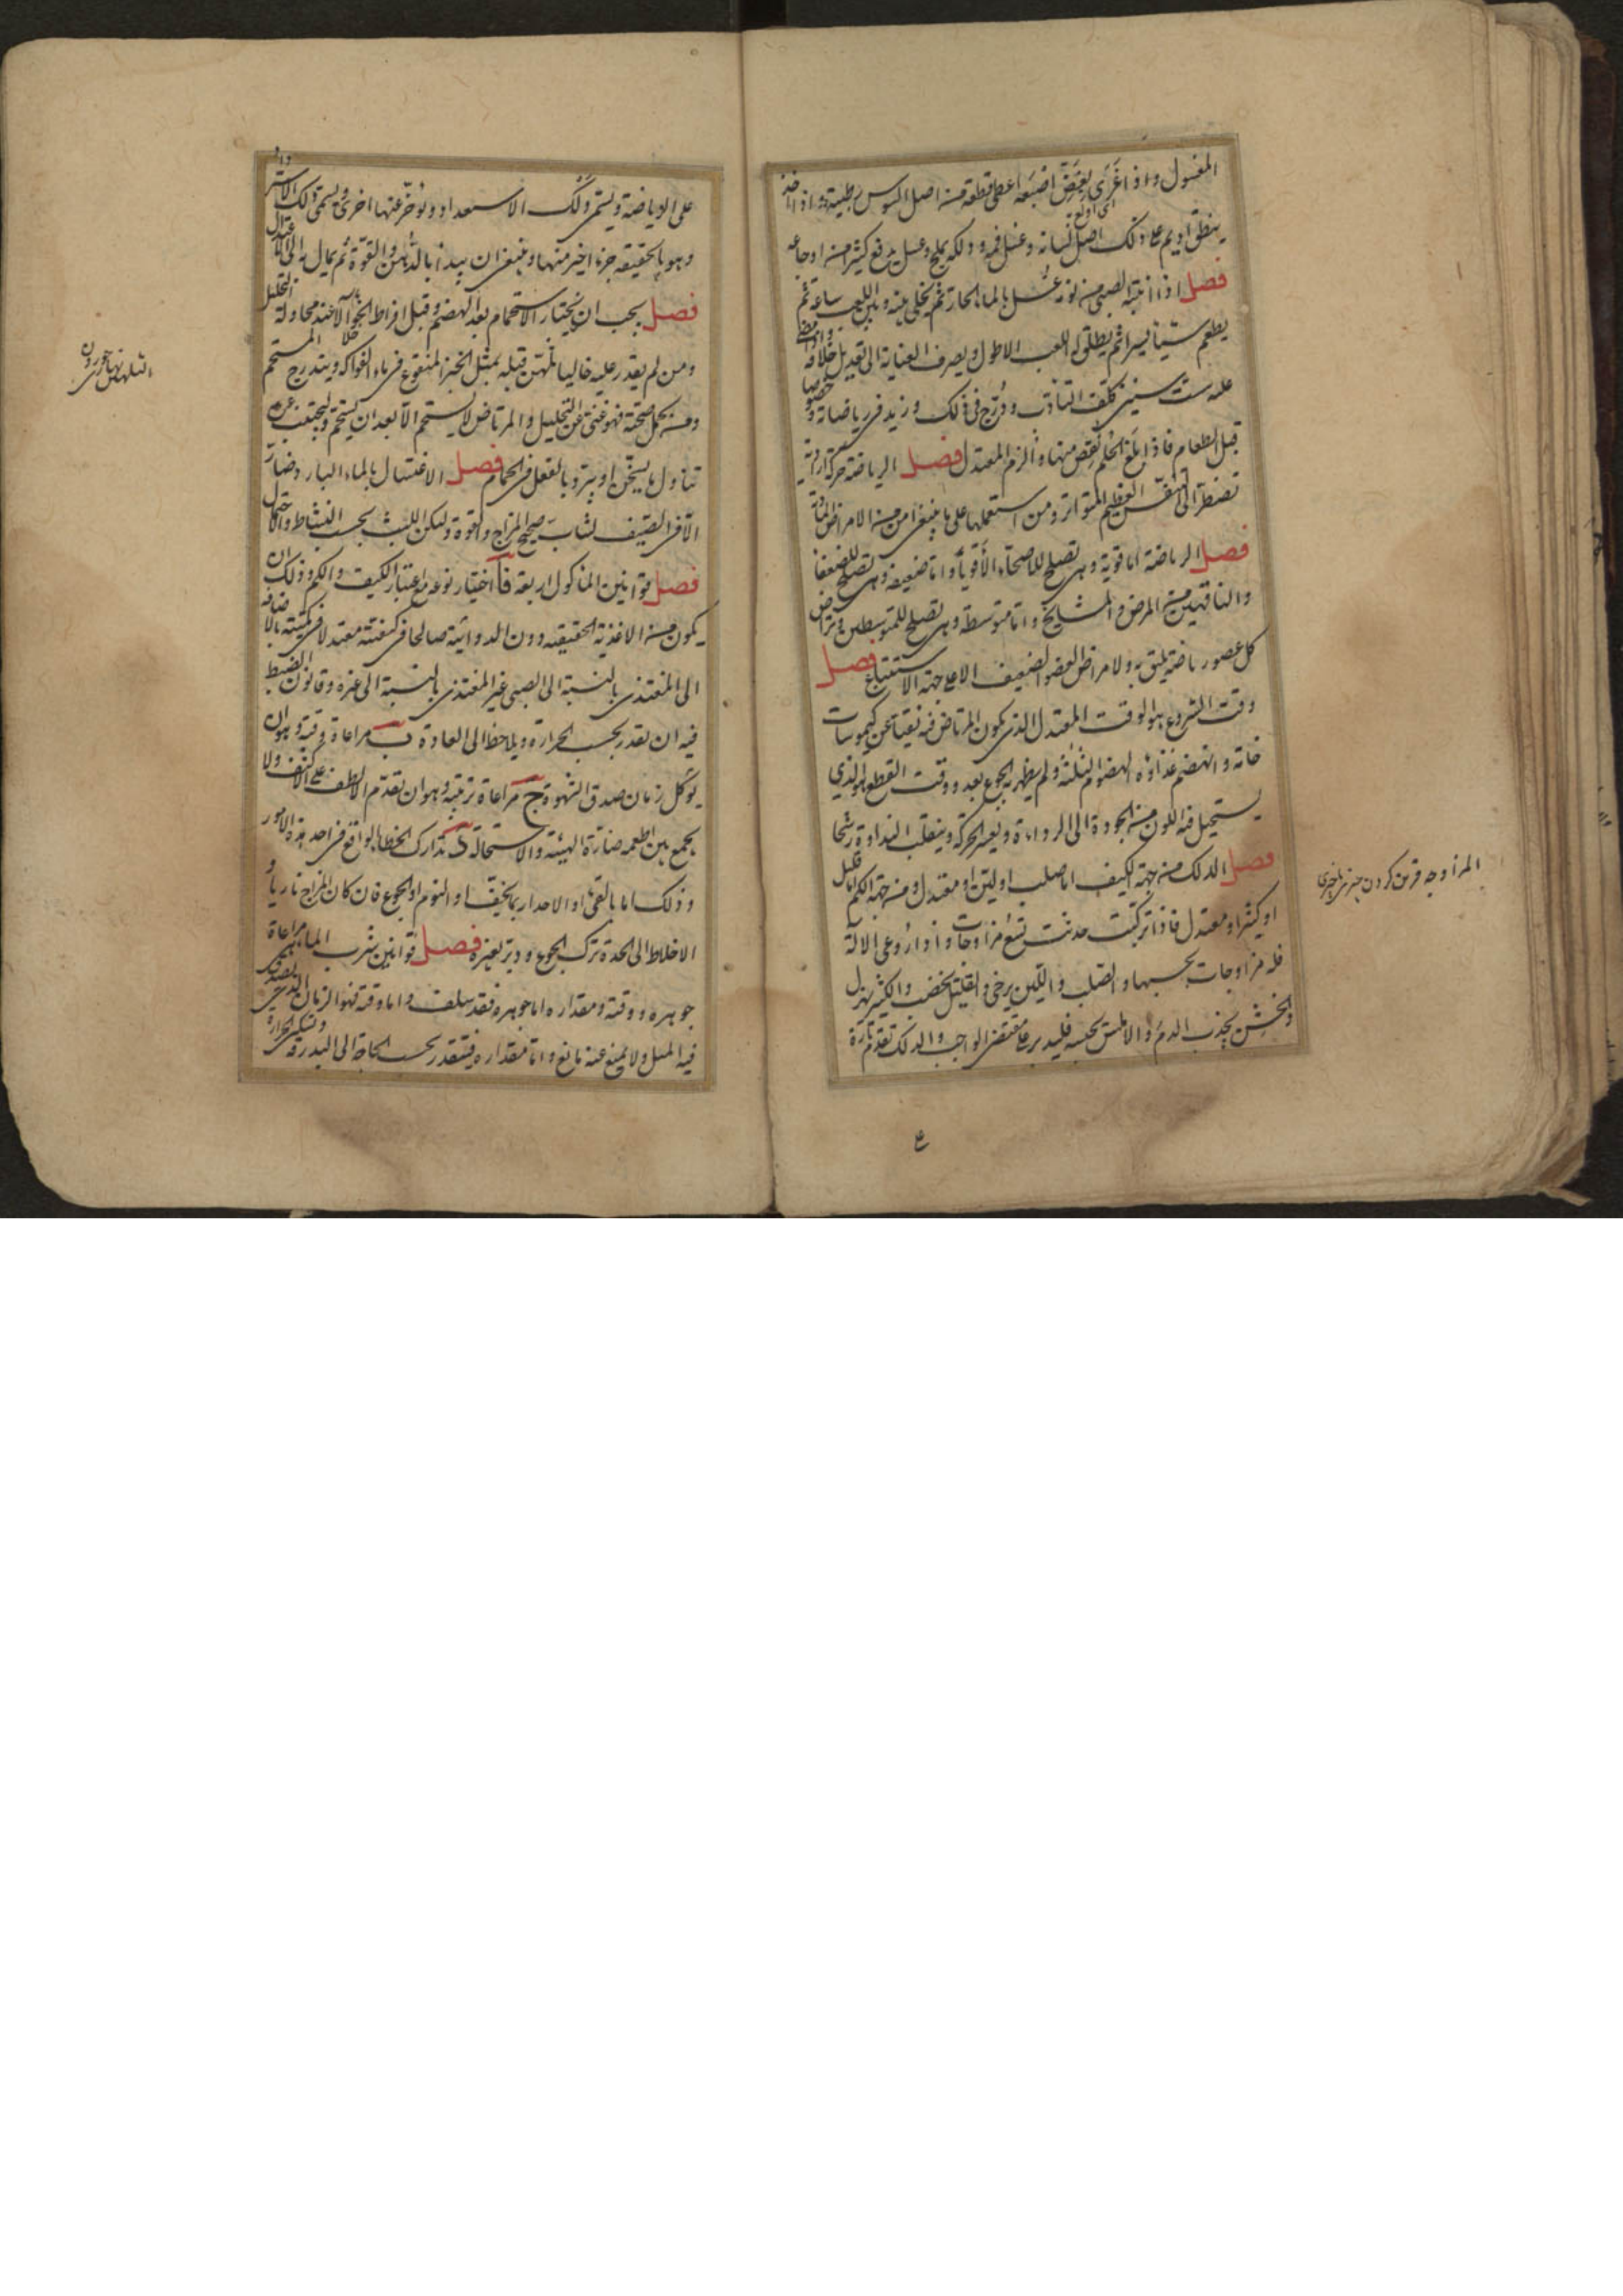 المغسول واذا غرى بعض اصبعه اعطى قطعة من اصل السوس رطبية واذا اخذ
ينطق اديم على ذلك اصل لسانه وغسل فمه ودلكه بملح وعسل يدفع كثيرا من اوجاعه
فصل اذا انتبه الصبى من نومه غسل بالماء الحار ثم يخلى بينه وبين اللعب ساعة ثم
يطعم شيئا يسيرا ثم يطلق له اللعب الاطول ويصرف العناية الى تعديل اخلاقه واذا مضا
عليه ست سنين كلف التادب ودرج فى ذلك وزيد فى رياضاته خصوصا
قبل الطعام فاذا بلغ الحلم نقص منها والزم المعتدل فصل الرياضة حركة ارادية
تضطر الى التنفس العظيم المتواتر ومن استعملها على ما ينبغى امن من الامراض المادية
فصل الرياضة اما قوية وهى تصلح للاصحاء الأقوياء واما ضعيفة وهى تصلح للضعفا
والناقهين من المرض والمشايخ واما متوسطة وهى تصلح للمتوسطين ويراض
كل عضو رياضة تليق به ولا يراض العضو الضعيف الا على جهة الاستتباع فصل
وقت الشروع هو الوقت المعتدل الذى يكون المرتاض فيه نقيا عن كيموسات
خامة وانهضم غذاؤه الهضوم الثلثة ولم يظهر به الجوع بعد ووقت القطع هو الذي
يستحيل فيه اللون من الجودة الى الرداءة ويعسر الحركة وينقلب النداوة رشحا
فصل الدلك من جهة الكيف اما صلب او لين او معتدل ومن جهة الكم اما قليل
او كثير او معتدل فاذا تركبت حدثت تسع مزاوجات واذا روعى الالة
فله مزاوجات بحسبها والصلب واللين يرخى والقليل يخضب والكثير يهزل
والخشن يجذب الدم والاملس يحبسه فليدبر على مقتضى الواجب والدلك تقدم تارة
المزاوجه قرين كردن چيزى با چيزى
على الرياضة ويسمى دلك الاستعداد ويؤخر عنها اخرى ويسمى دلك الاسترداد
وهو بالحقيقة جزء اخير منها وينبغى ان يبدأ بالدهن والقوة ثم يمال به الى الاعتدال
فصل يجب ان يختار الاستحمام بعد الهضم وقبل افراط الخوا الا عند محاولة التحليل
ومن لم يقدر عليه خاليا تلهن قبله بمثل الخبز المنقوع فى ماء الفواكه ويتدرج المستحم
ومن كمل صحته فهو غنى عن التحليل والمرتاض لا يستحم الا بعد ان يستجم وليجتنب عن
تناول ما يسخن او يبرد بالفعل فى الحمام فصل الاغتسال بالماء البارد ضار
الا فى الصيف لشاب صحيح المزاج والقوة وليكن اللبث بحسب النشاط والاحتمال
فصل قوانين الماكول اربعة فا اختيار نوعه مع اعتبار الكيف والكم وذلك ان
يكون من الاغذية الحقيقيه دون الدوائية صالحا فى كيفيته معتدلا فى كميته بالاضافه
الى المغتذى بالنسبة الى الصبى غير المغتذى بالنسبة الى غيره وقانون الضبط
فيه ان تقدر بحسب الحرارة ويلاحظ الى العادة ب مراعاة وقته وهو ان
يؤكل زمان صدق الشهوة ج مراعاة ترتيبه وهو ان تقدم الالطف على الاكثف ولا
يجمع بين اطعمه ضارة الهيئة والاستحالة د تدارك الخطا الواقع فى احد هذه الامور
وذلك اما بالقئ او الاحدار بما يخفف او النوم او الجوع فان كان المزاج ناريا
الاخلاط الى الحدة ترك الجوع ودبر بغيره فصل قوانين شرب الماء مراعاة
جوهره ووقته ومقداره اما جوهره فقد سلف واما وقته فهو الزمان الذى يصدق
فيه الميل ولا يمنع عنه مانع واما مقداره فيتقدر بحسب الحاجة الى البدرقة وتسكين الحرارة
التلهن نهارى خوردن